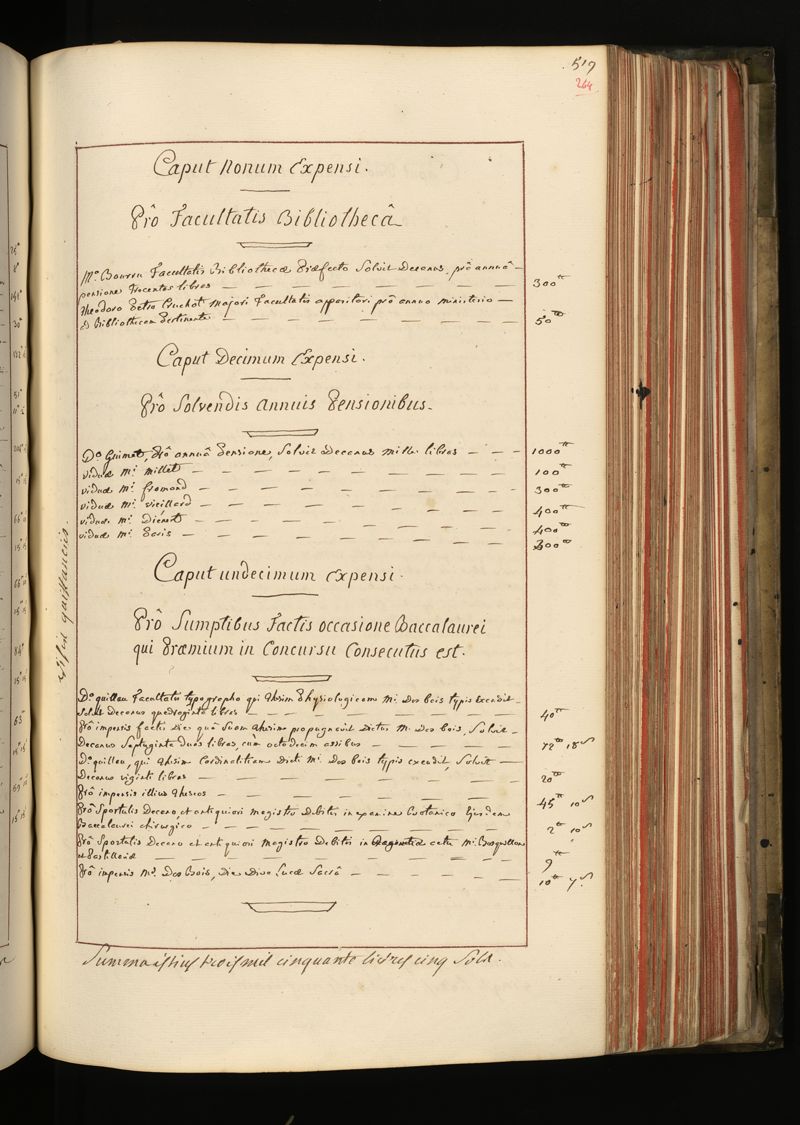 519
264
Caput Nonum Expensi.
Prô Facultatis Bibliothecâ
Mo. Bourru Facultatis Bibliothecæ Præfecto Solvit Decanus, prô annuâ
pensione trecentas libras 300tt
Theodoro Petro Cruchot Majori Facultatis apparitori prô annuo ministerio
ad Bibliothecam Pertinente 50tt
Caput Decimum Expensi.
Prô Solvendis Annuis Pensionibus.
Do. Guimet, Prô annuâ Pensione, Solvit Decanus mille libras 1000tt
viduæ Mi. Millet 100tt
viduæ Mi. fromond 300tt
viduæ Mi. vieillard 400tt
viduæ Mi. Diénert 400tt
viduæ Mi. 300tt
Caput undecimum Expensi.
Prô Sumptibus Factis occasione Baccalaurei
qui Præmium in Concursu Consecutus est.
Do. quillau Facultatis typographo qui thesim Physiologicam Mi. Des bois typis excudit
Solvit Decanus quadraginta libras 40tt
Prô impensis factis Die quâ Suam thesim propugnavit Dictus M. Des bois, Solvit
Decanus Septuginta duas libras, cum octodecim assibus 72tt 18s
Do. quillau, qui thesim Cardinalitiam Dicti Mi. Des bois typis excudit, Solvit
Decanus viginti libras 20tt
Prô impensis illius theseos 45tt 10s
Prô Sportulis Decano et antiquiori magistro Debitis in examine Botanico Ejusdem
Baccalaurei chirurgico 2tt 10s
Prô Sportulis Decano et antiquiori Magistro Debitis in actu Mi. Bosquillon
et Pastillariæ 9tt
Prô impensis Mi. Des Bois, Die Divo Lucæ Sacrâ 10tt 7s
Summa istius trois mil cinquante livres cinq Sols.